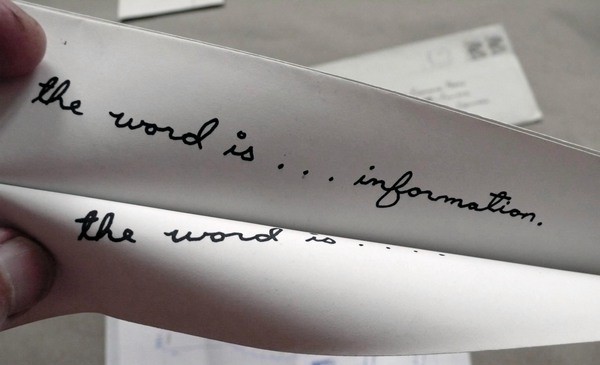 the word is . . . information.
the word is . . . . .